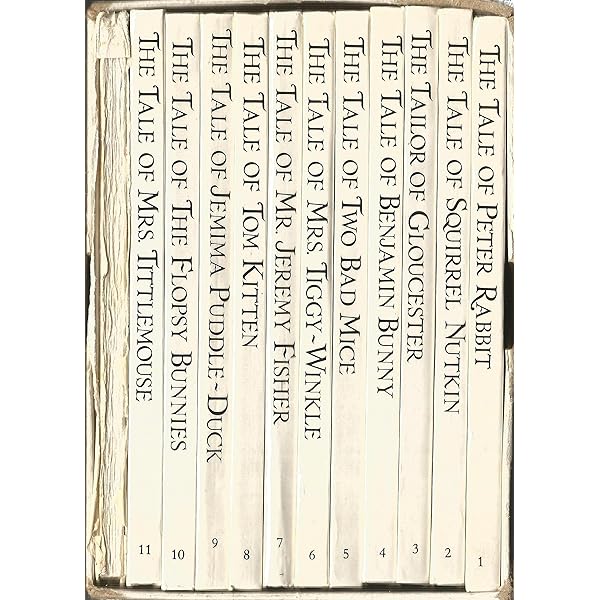 The Tale of Peter Rabbit 1
The Tale of Squirrel Nutkin 2
The Tailor of Gloucester 3
The Tale of Benjamin Bunny 4
The Tale of Two Bad Mice 5
The Tale of Mrs. Tiggy~Winkle 6
The Tale of Mr. Jeremy Fisher 7
The Tale of Tom Kitten 8
The Tale of Jemima Puddle~Duck 9
The Tale of The Flopsy Bunnies 10
The Tale of Mrs. Tittlemouse 11